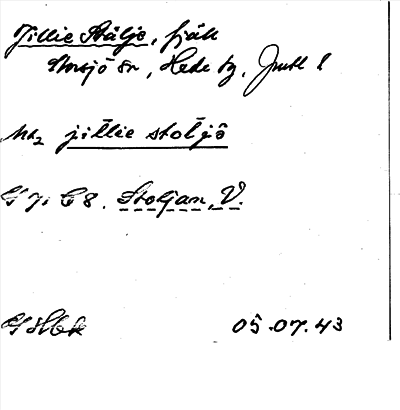 Jillie Stålje, fjäll
Storsjö sn, Hede tg, Jmtl l
jillie stoljô
G 7. C 8. Stoljan, V.
05.07.43